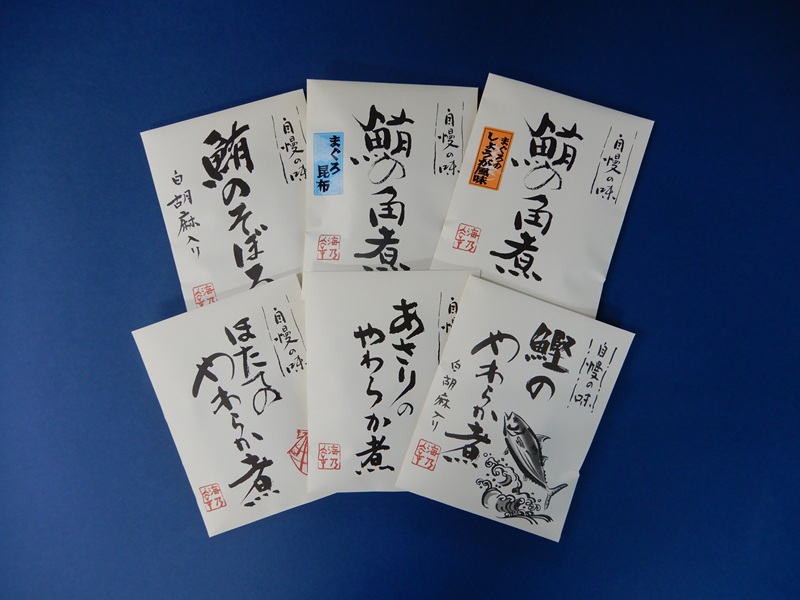 自慢の味
鮪のそぼろ
白胡麻入り
自慢の味
鮪の角煮
まぐろ
昆布
自慢の味
鮪の角煮
まぐろの
しょうが風味
自慢の味
ほたての
やわらか煮
自慢
あさりの
やわらか煮
自慢の味
鰹の
やわらか煮
白胡麻入り